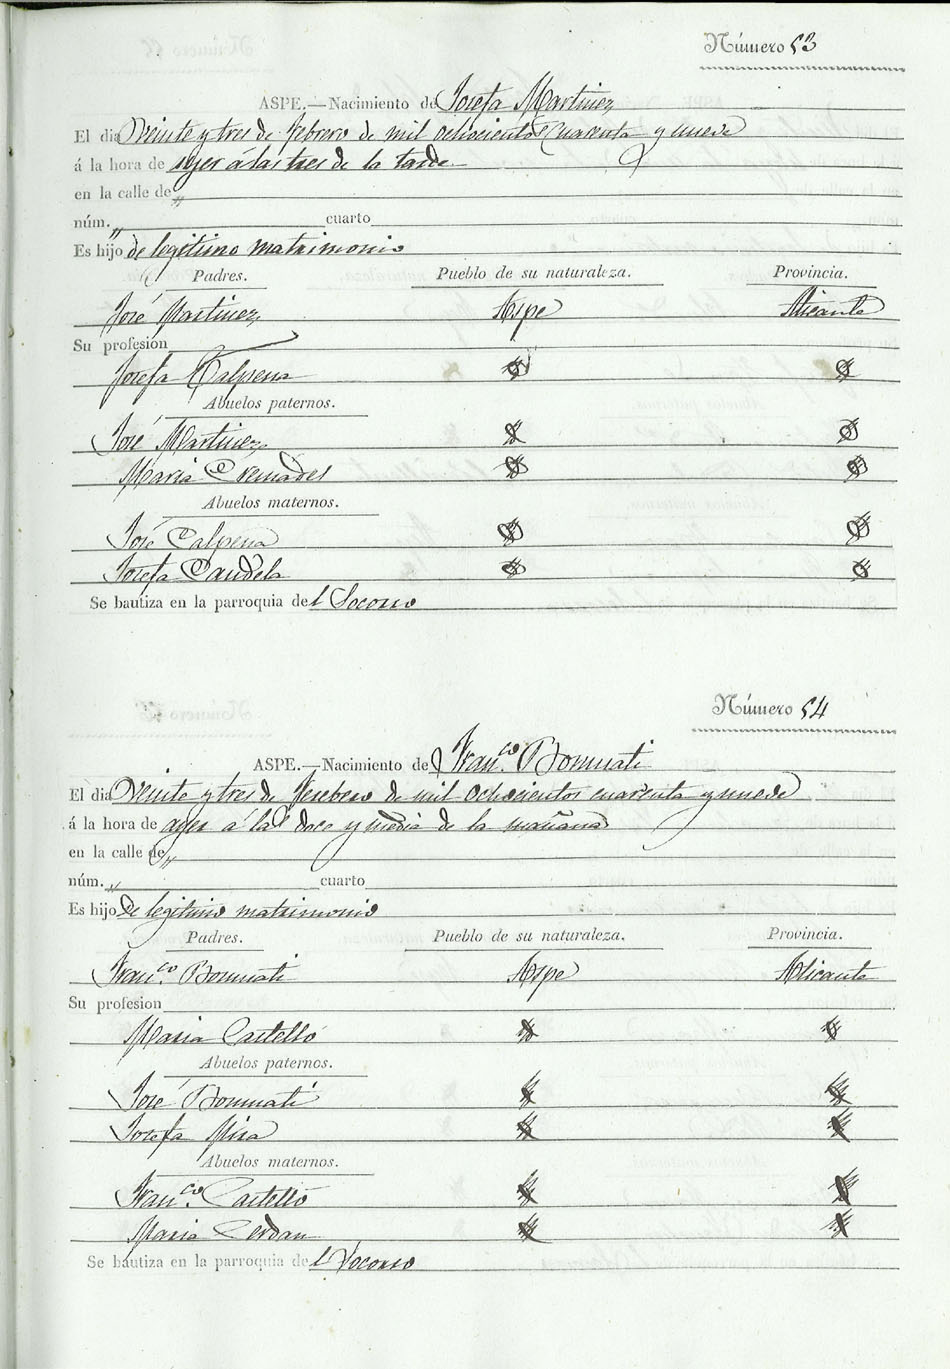 Número 53
ASPE.—Nacimiento de Josefa Martinez
El dia Veinte y tres de febrero de mil ochocientos cuarenta y nueve
á la hora de ayer á las tres de la tarde
en la calle de "
núm. " cuarto
Es hijo de legitimo matrimonio
Padres. Pueblo de su naturaleza. Provincia.
José Martinez Aspe Alicante
Su profesión
Josefa Calpena
Abuelos paternos.
José Martinez
Maria Cremades
Abuelos maternos.
José Calpena
Josefa Candela
Se bautiza en la parroquia del Socorro
Número 54
ASPE.—Nacimiento de Franco. Bonmati
El dia Veinte y tres de Ferebero de mil ochocientos cuarenta y nueve
á la hora de ayer á las doce y media de la mañana
en la calle de "
núm. " cuarto
Es hijo De legitimo matrimonio
Padres. Pueblo de su naturaleza. Provincia.
Franco. Bonmati Aspe Alicante
Su profesion
Maria Castelló
Abuelos paternos.
José Bonmati
Josefa Mira
Abuelos maternos.
Franco. Castelló
Maria Cerdan
Se bautiza en la parroquia del Socorro